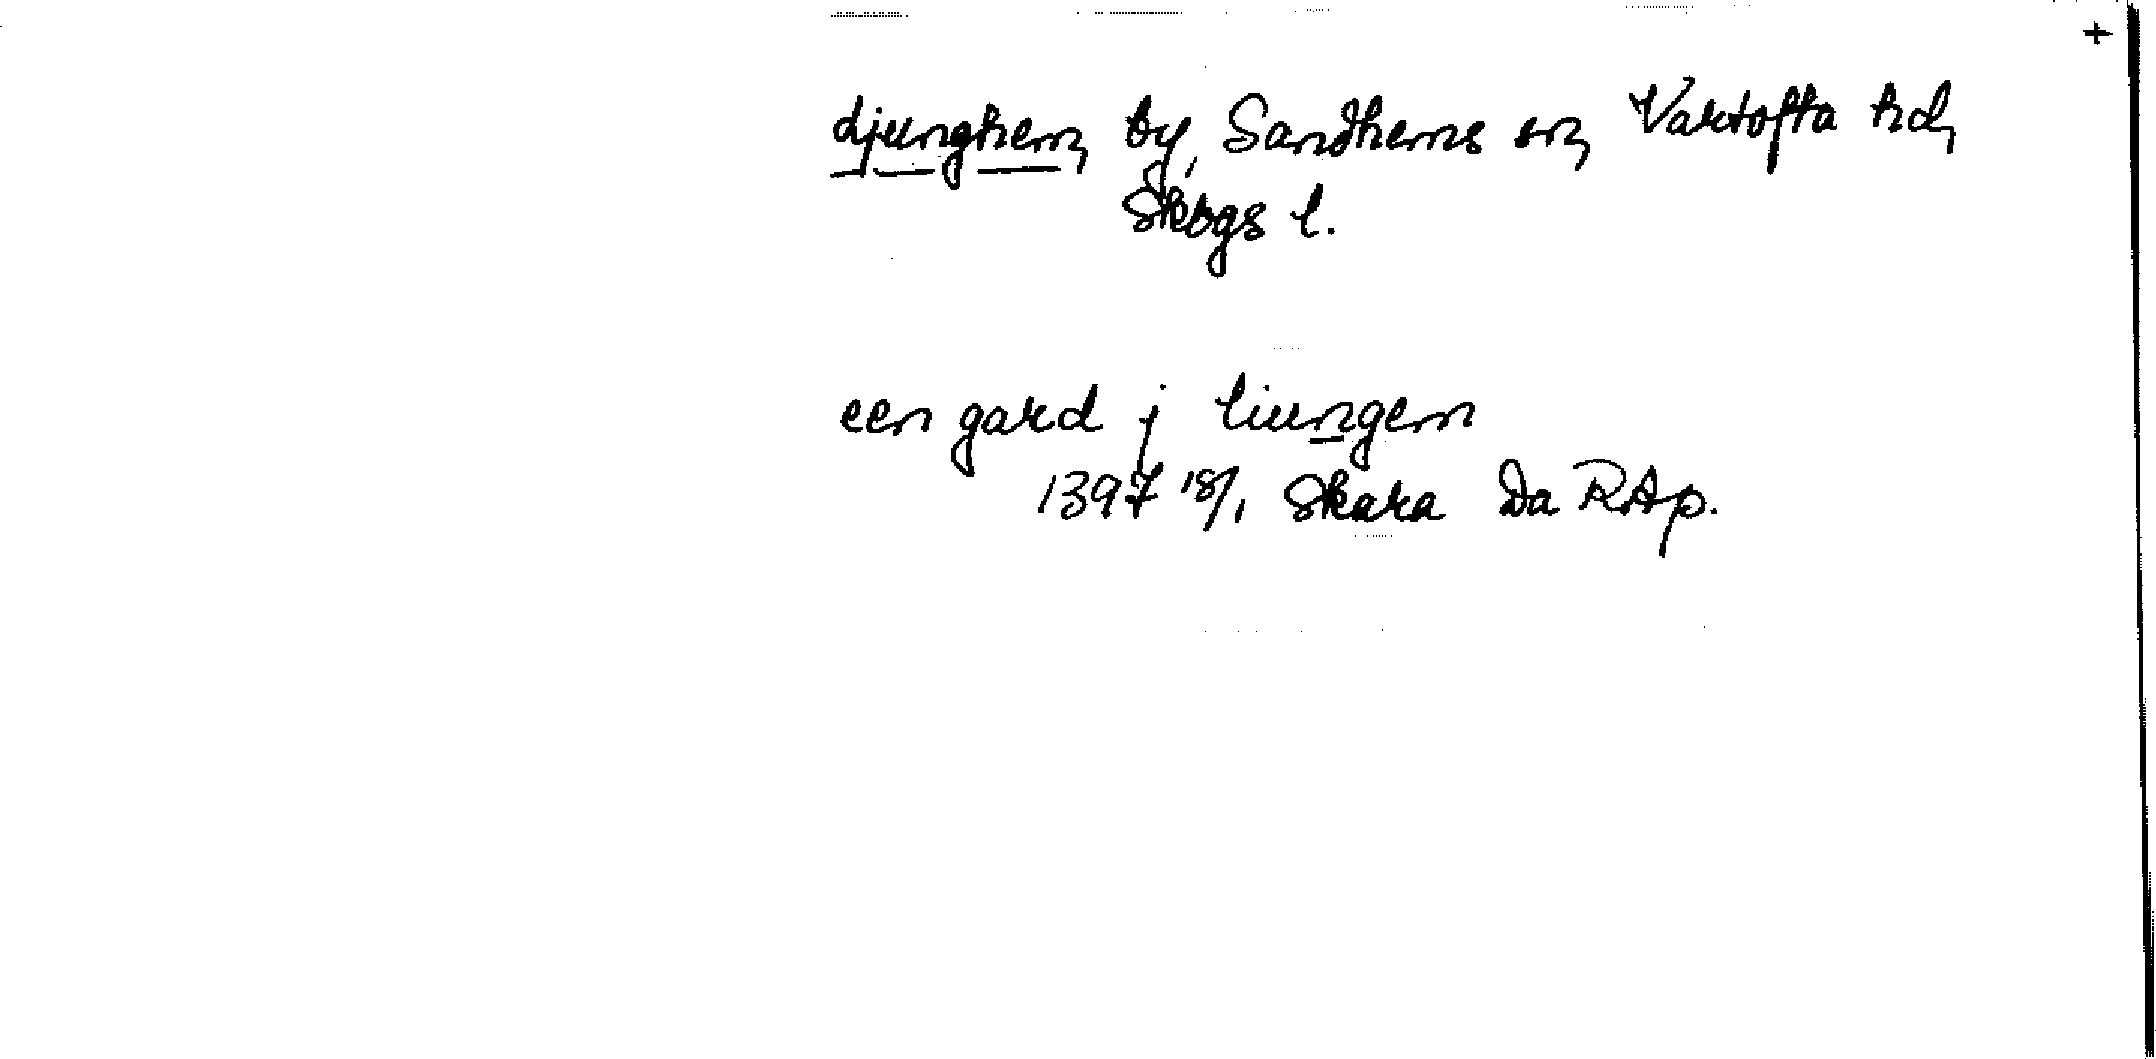 +
djunghem, by, Sandhems sn, Vartofta hd,
Skbgs l.
een gard j liungem
1397 18/1 Skara Da RAp.